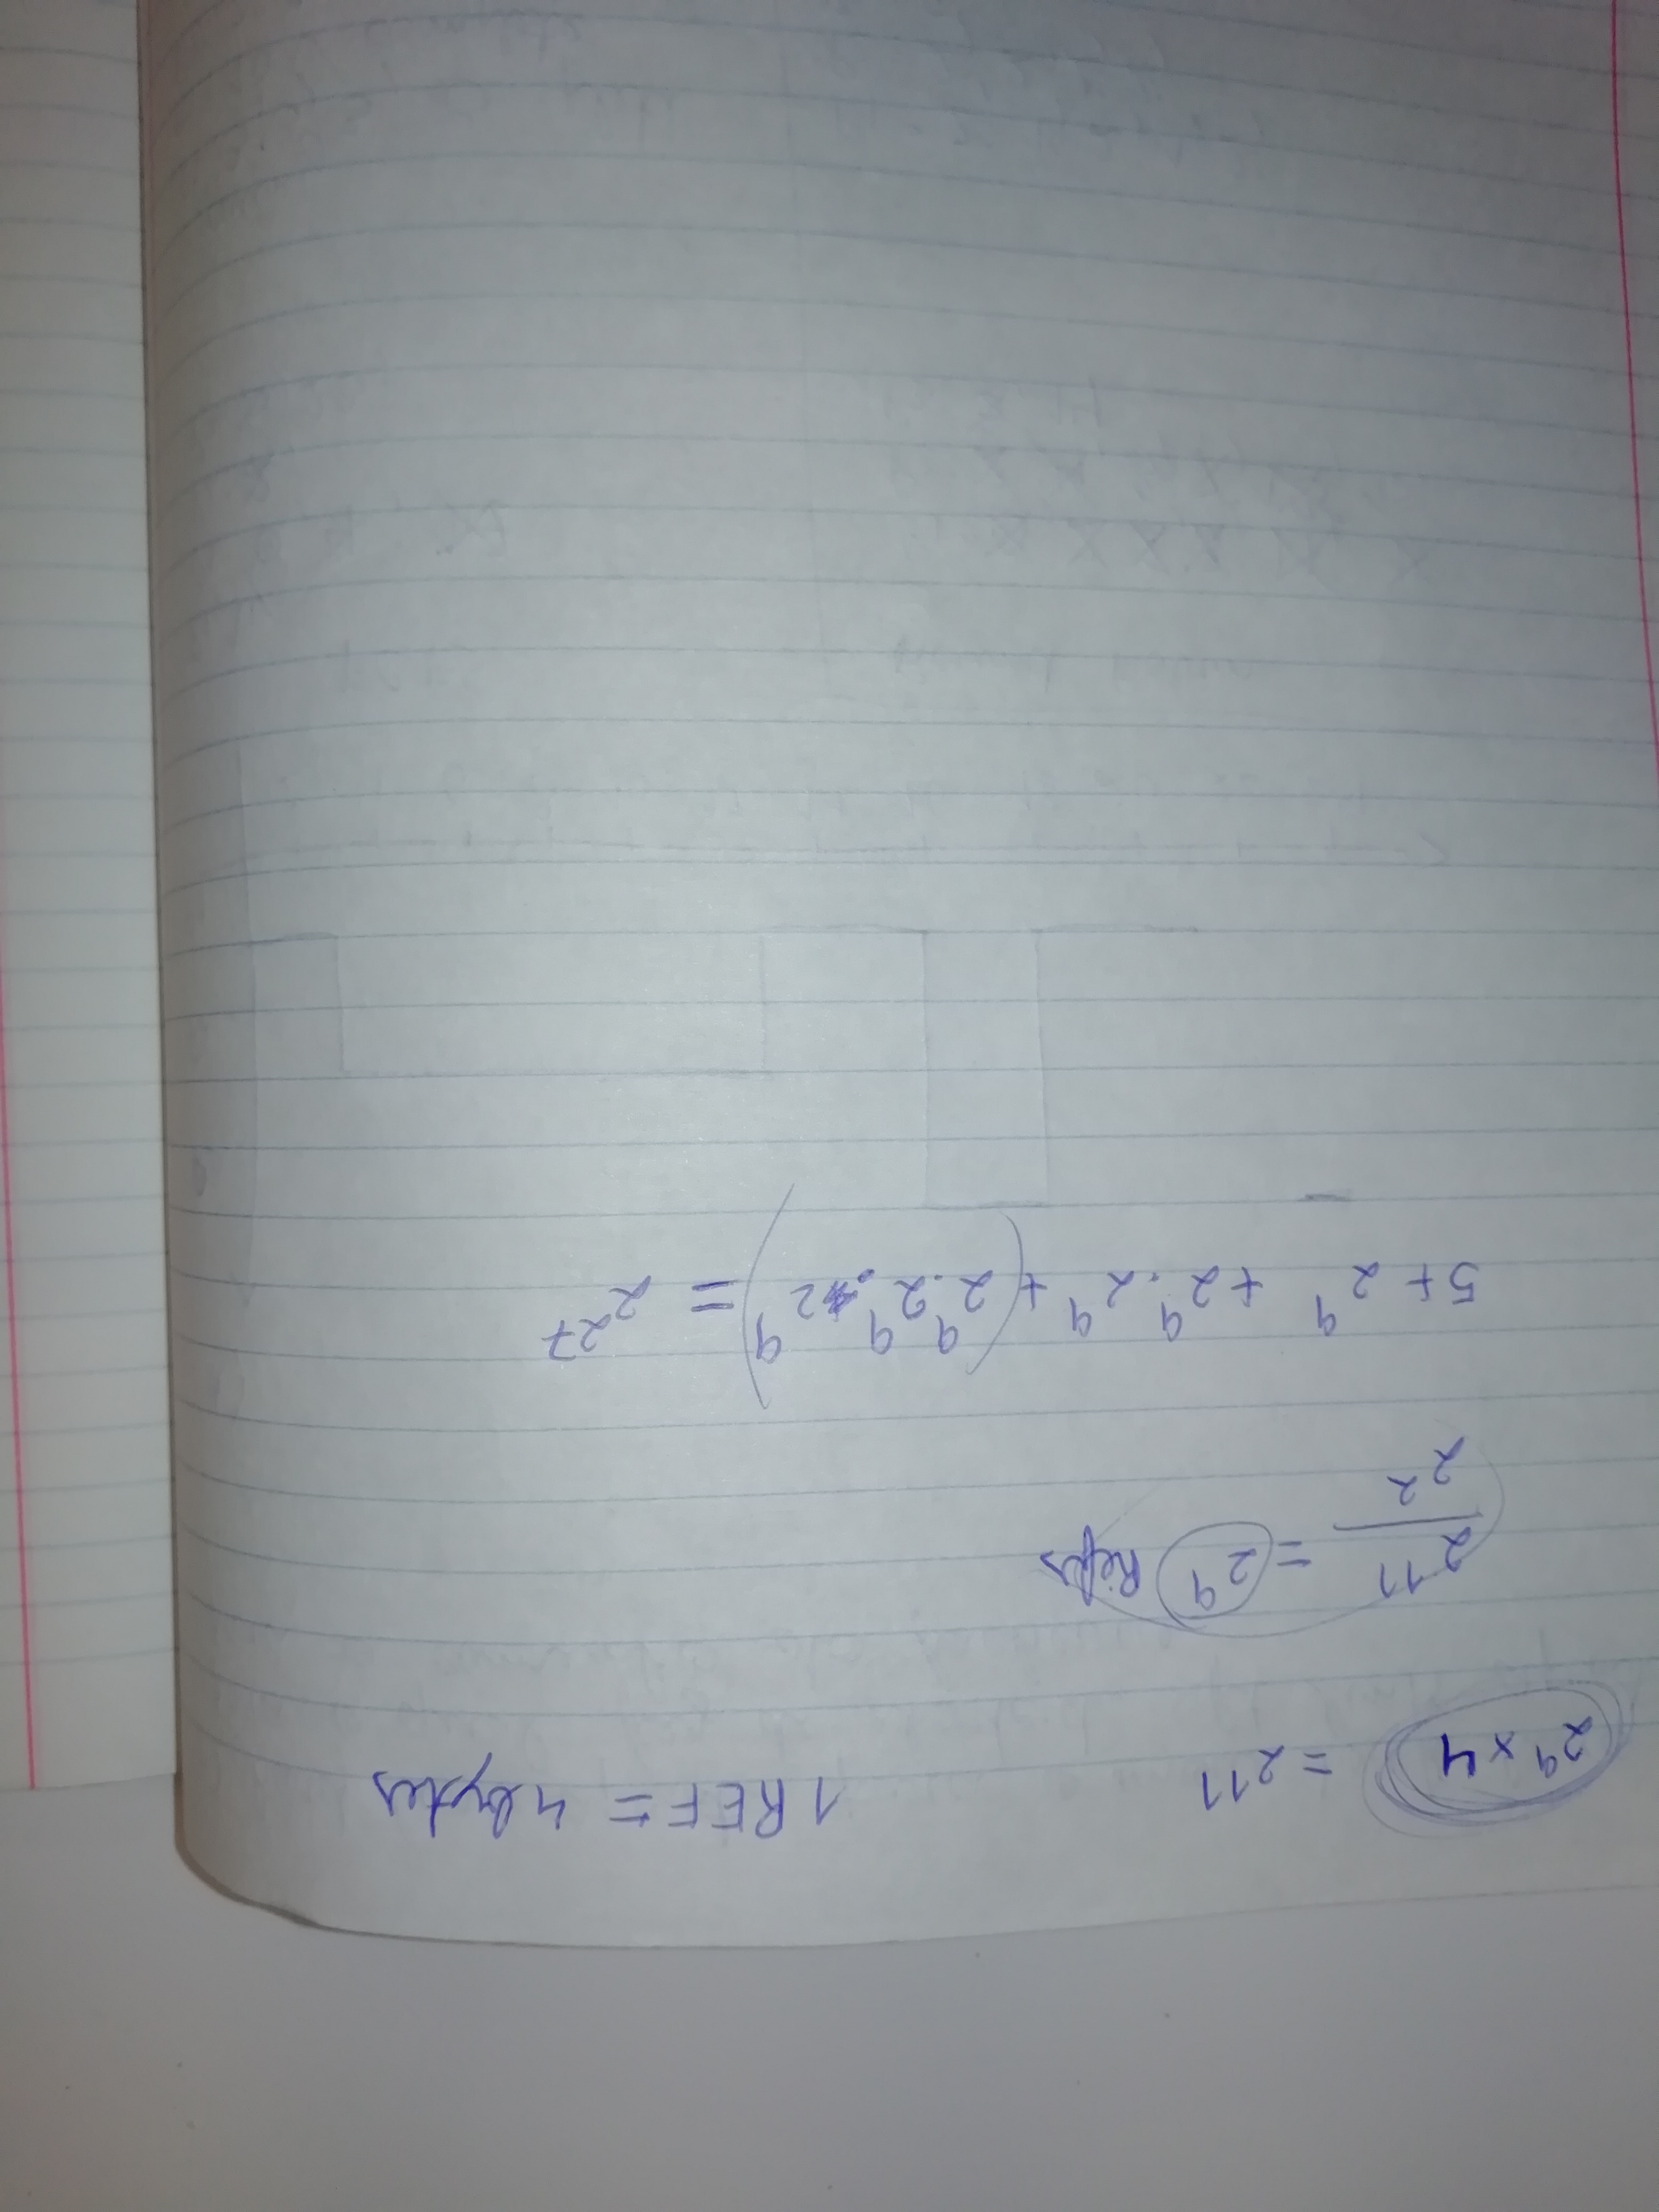 2⁹ x 4 = 2¹¹ 1 REF = 4 bytes
2¹¹/2² = 2⁹ Réfs
5 + 2⁹ + 2⁹ . 2⁹ + (2⁹ . 2⁹ . 2⁹) = 2²⁷